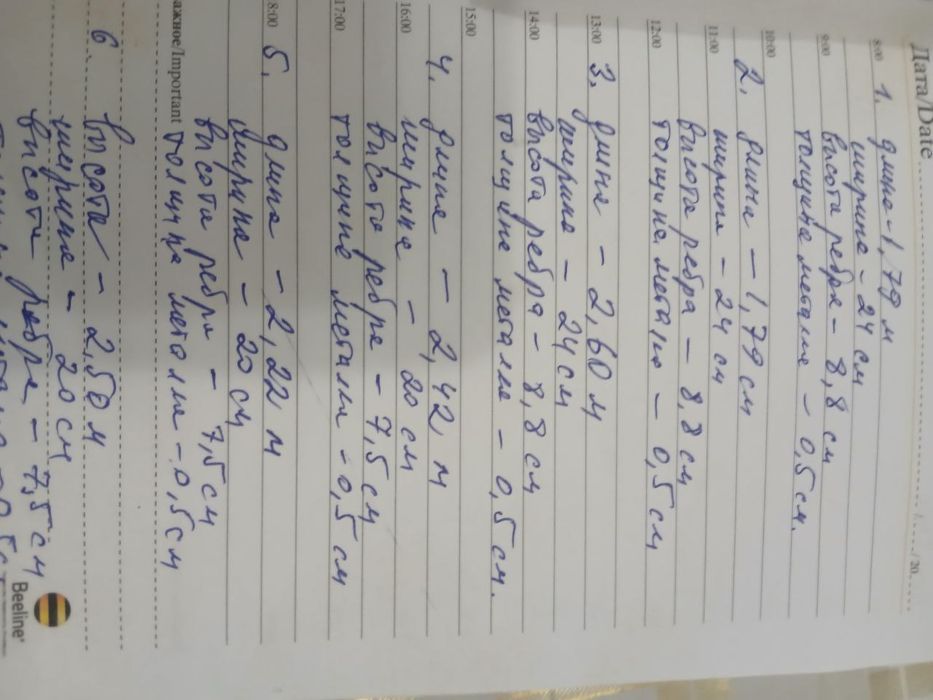 Дата/Date
/20
8:00
1. длина-1,79 м
ширина-24 см
9:00
высота ребра-8,8 см
толщина металла - 0,5 см.
10:00
2. длина-1,79 см
11:00
ширина-24 см
высота ребра-8,8 см
12:00
толщина металла-0,5 см
13:00
3. длина-2,60 м
ширина-24 см
14:00
высота ребра-8,8 см
толщина металла-0,5 см.
15:00
4. длина-2,42 м
16:00
ширина-20 см
высота ребра-7,5 см
17:00
толщина металла-0,5 см
8:00
5. длина-2,22 м
ширина-20 см
высота ребра-7,5 см
ажное/Important
толщина металла-0,5 см
6. высота-2,50 м
ширина-20 см
высота ребра-7,5 см
Beeline